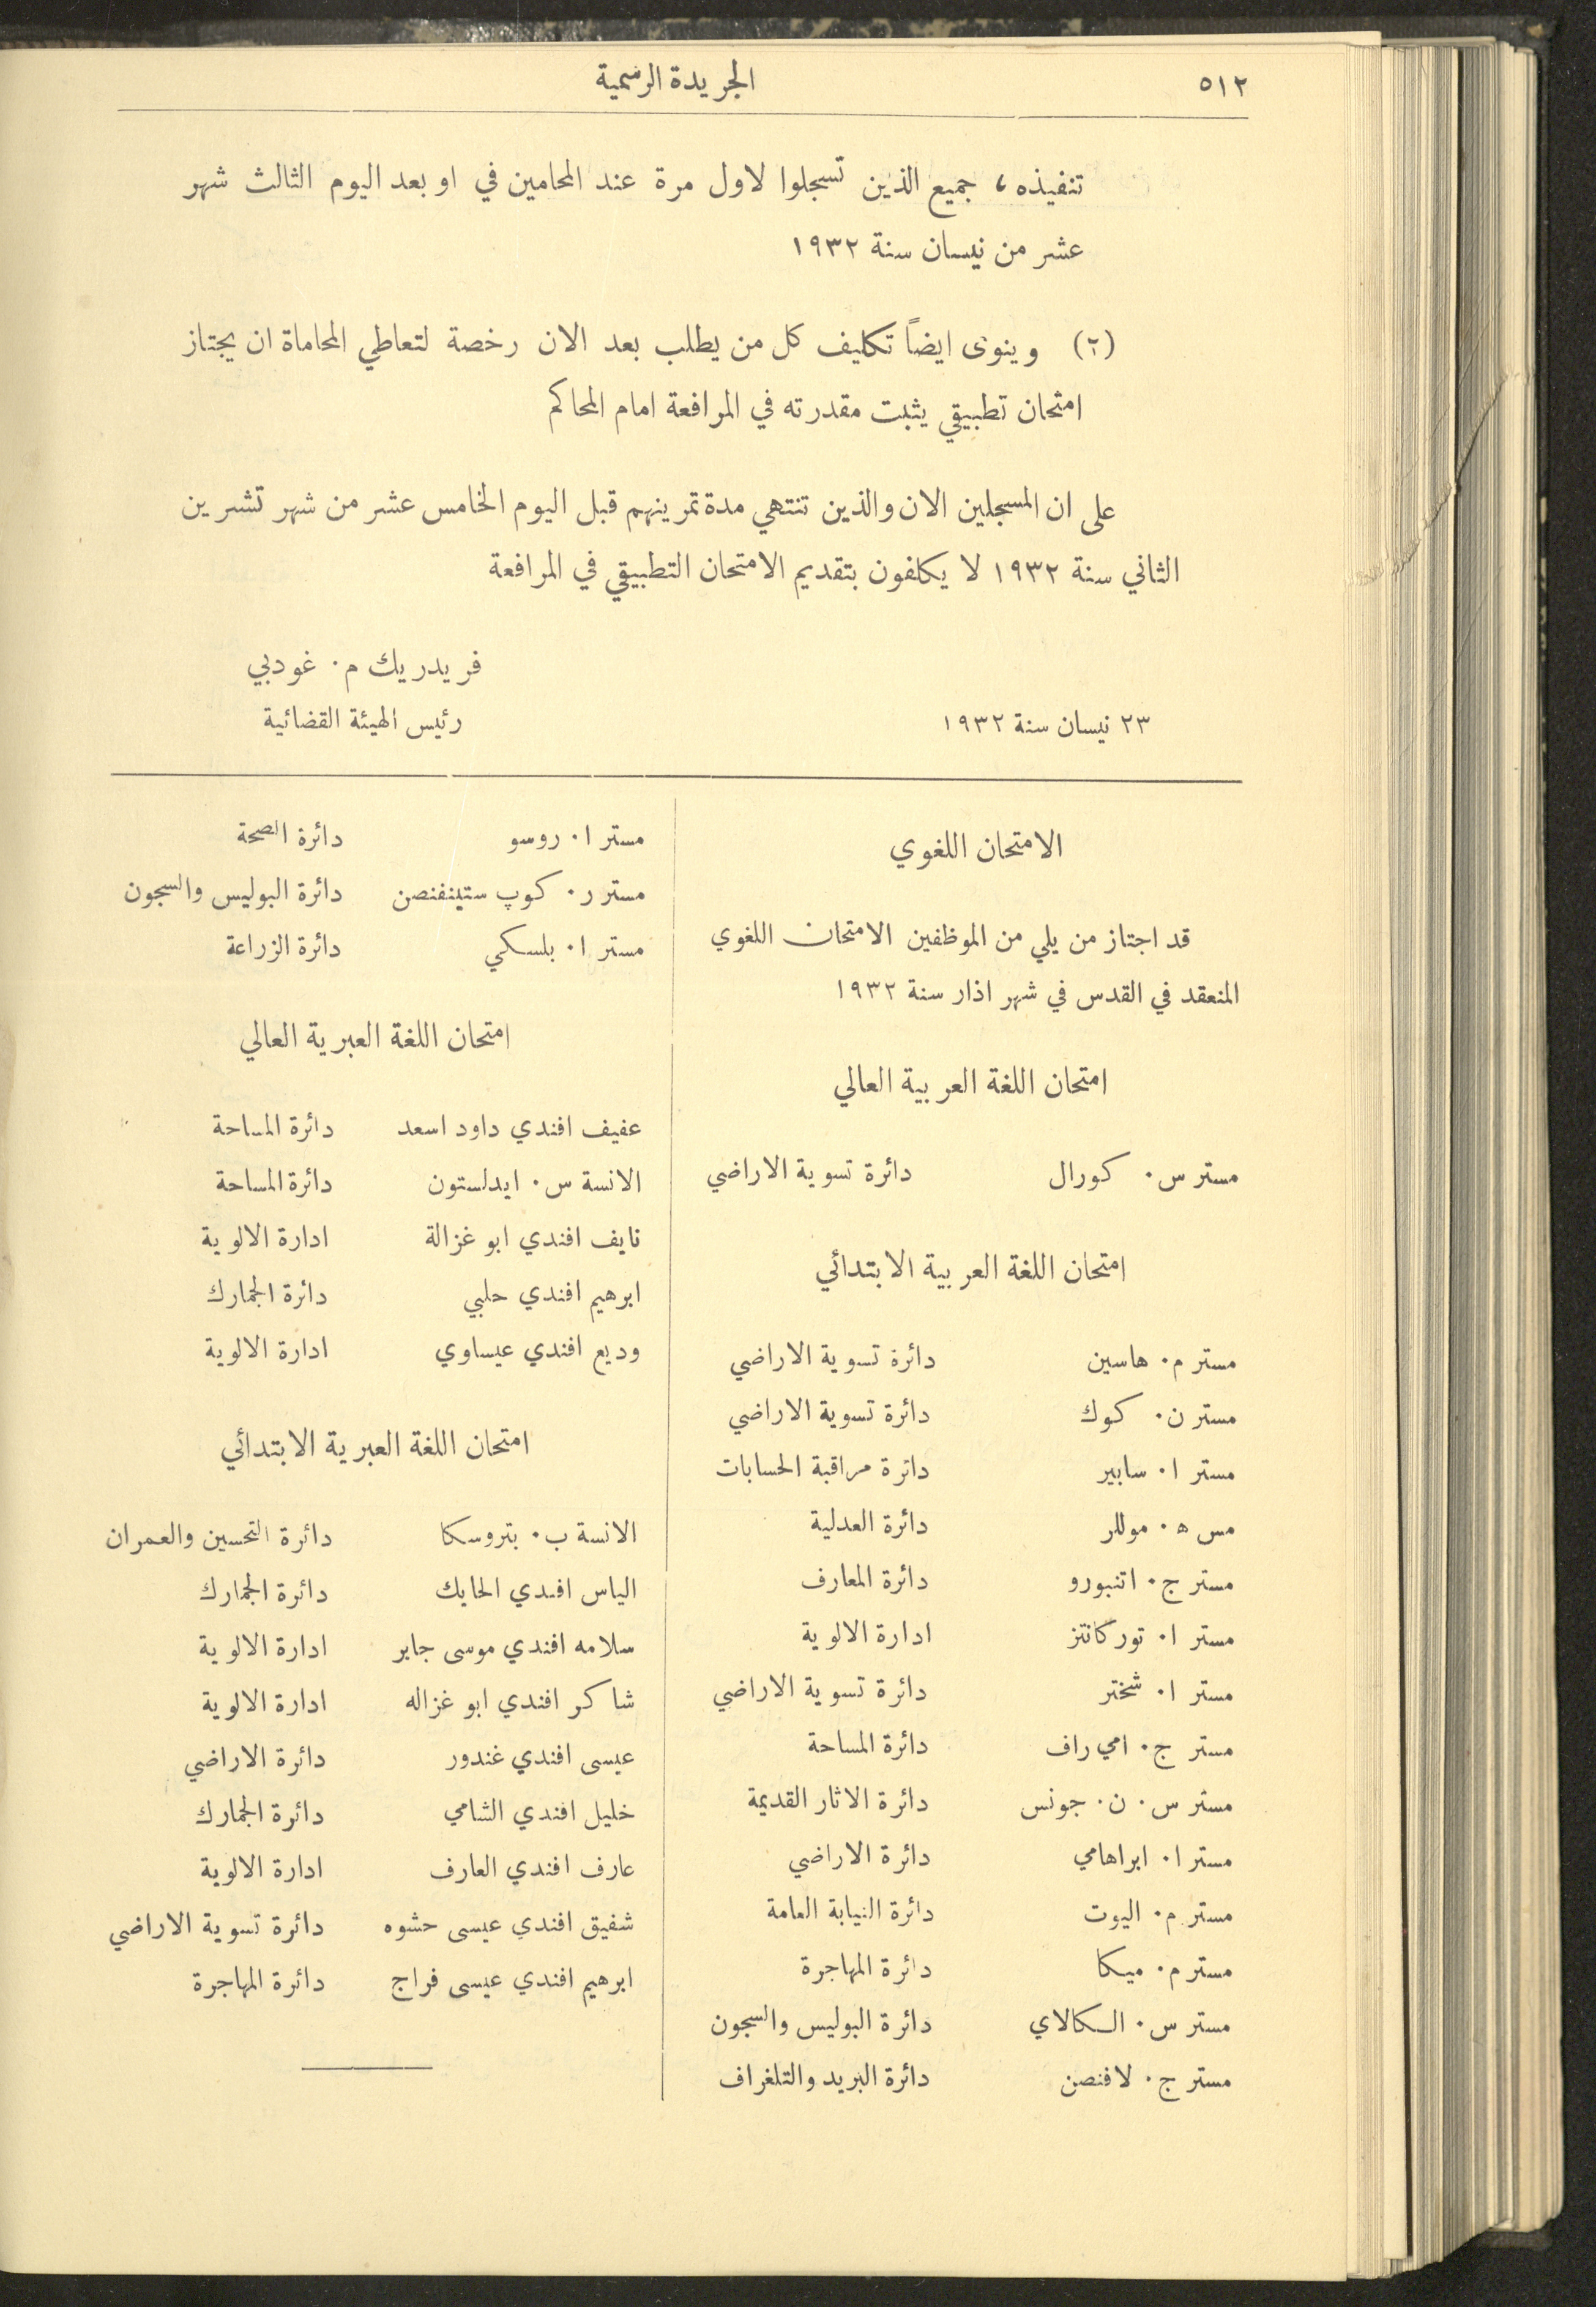 ٥١٢
الجريدة الرسمية
تنفيذه، جميع الذين تسجلوا لاول مرة عند المحامين في او بعد اليوم الثالث شهر
عشر من نيسان سنة ١٩٣٢
(٢) وينوى ايضاً تكليف كل من يطلب بعد الان رخصة لتعاطي المحاماة ان يجتاز
امتحان تطبيقي يثبت مقدرته في المرافعة امام المحاكم
على ان المسجلين الان والذين تنتهي مدة تمرينهم قبل اليوم الخامس عشر من شهر تشرين
الثاني سنة ١٩٣٢ لا يكلفون بتقديم الامتحان التطبيقي في المرافعة
فريدريك م. غودبي
٢٣ نيسان سنة ١٩٣٢ رئيس الهيئة القضائية
الامتحان اللغوي
قد اجتاز من يلي من الموظفين الامتحان اللغوي
المنعقد في القدس في شهر اذار سنة ١٩٣٢
امتحان اللغة العربية العالي
مستر س. كورال دائرة تسوية الاراضي
امتحان اللغة العربية الابتدائي
مستر م. هاسين دائرة تسوية الاراضي
مستر ن. كوك دائرة تسوية الاراضي
مستر ا. سابير دائرة مراقبة الحسابات
مس ه. موللر دائرة العدلية
مستر ج. اتنبورو دائرة المعارف
مستر ا. توركانتز ادارة الالوية
مستر ا. شختر دائرة تسوية الاراضي
مستر ج. امي راف دائرة المساحة
مستر س. ن. جونس دائرة الاثار القديمة
مستر ا. ابراهامي دائرة الاراضي
مستر م. اليوت دائرة النيابة العامة
مستر م. ميكا دائرة المهاجرة
مستر س. السكالاي دائرة البوليس والسجون
مستر ج. لافنصن دائرة البريد والتلغراف
مستر ا. روسو دائرة الصحة
مستر ر. كوپ ستينفنصن دائرة البوليس والسجون
مستر ا. بلسكي دائرة الزراعة
امتحان اللغة العبرية العالي
عفيف افندي داود اسعد دائرة المساحة
الانسة س. ايدلستون دائرة المساحة
نايف افندي ابو غزالة ادارة الالوية
ابرهيم افندي حلبي دائرة الجمارك
وديع افندي عيساوي ادارة الالوية
امتحان اللغة العبرية الابتدائي
الانسة ب. بتروسكا دائرة التحسين والعمران
الياس افندي الحايك دائرة الجمارك
سلامه افندي موسى جابر ادارة الالوية
شاكر افندي ابو غزاله ادارة الالوية
عيسى افندي غندور دائرة الاراضي
خليل افندي الشامي دائرة الجمارك
عارف افندي العارف ادارة الالوية
شفيق افندي عيسى حشوه دائرة تسوية الاراضي
ابرهيم افندي عيسى فراج دائرة المهاجرة